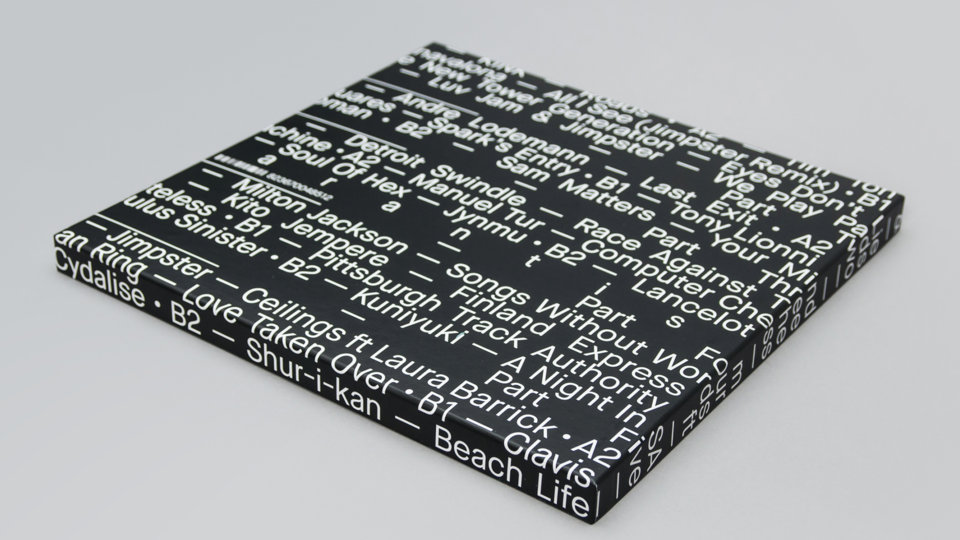 All I See (Jimpster Remix) •
— New Tower Generation — Eyes Don't
Luv Jam & Jimpster — We Play
Part
— Andre Lodemann — Last Exit • A2
uares — Spark's Entry • B1 — Tony Lionni
xman • B2 — Sam Matters — Your
Part Three
— Detroit Swindle — Race Against
chine • A2 — Manuel Tur — Computer Che
Soul Of Hex — Jynnmu • B2 — Lancelot
Part Four
— Milton Jackson — Songs Without Words ft
— Kito Jempere — Finland Express
teless • B1 — Pittsburgh Track Authority
ulus Sinister • B2 — Kuniyuki — A Night In
Part Five
Jimpster — Ceilings ft Laura Barrick • A2
an Ring — Love Taken Over • B1 — Clavis
Cydalise • B2 — Shur-i-kan — Beach Life